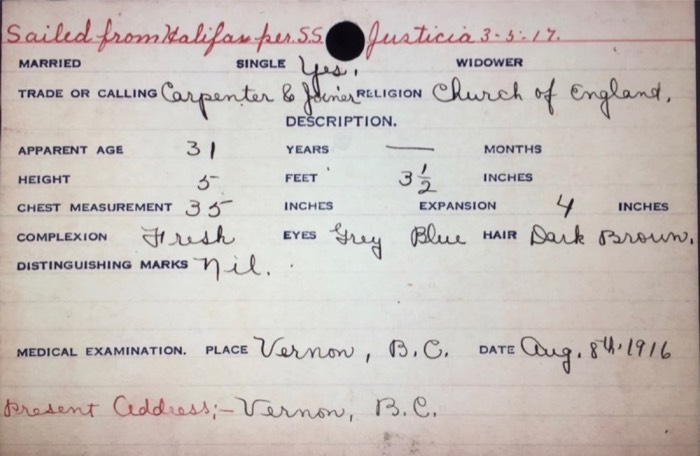 Sailed from Halifax per. S.S. Justicia 3-5-17.
MARRIED SINGLE Yes. WIDOWER
TRADE OR CALLING Carpenter & Joiner RELIGION Church of England.
DESCRIPTION.
APPARENT AGE 31 YEARS — MONTHS
HEIGHT 5 FEET 3½ INCHES
CHEST MEASUREMENT 35 INCHES EXPANSION 4 INCHES
COMPLEXION Fresh EYES Grey Blue HAIR Dark Brown.
DISTINGUISHING MARKS Nil.
MEDICAL EXAMINATION. PLACE Vernon, B.C. DATE Aug. 8th. 1916
Present Address;- Vernon, B.C.